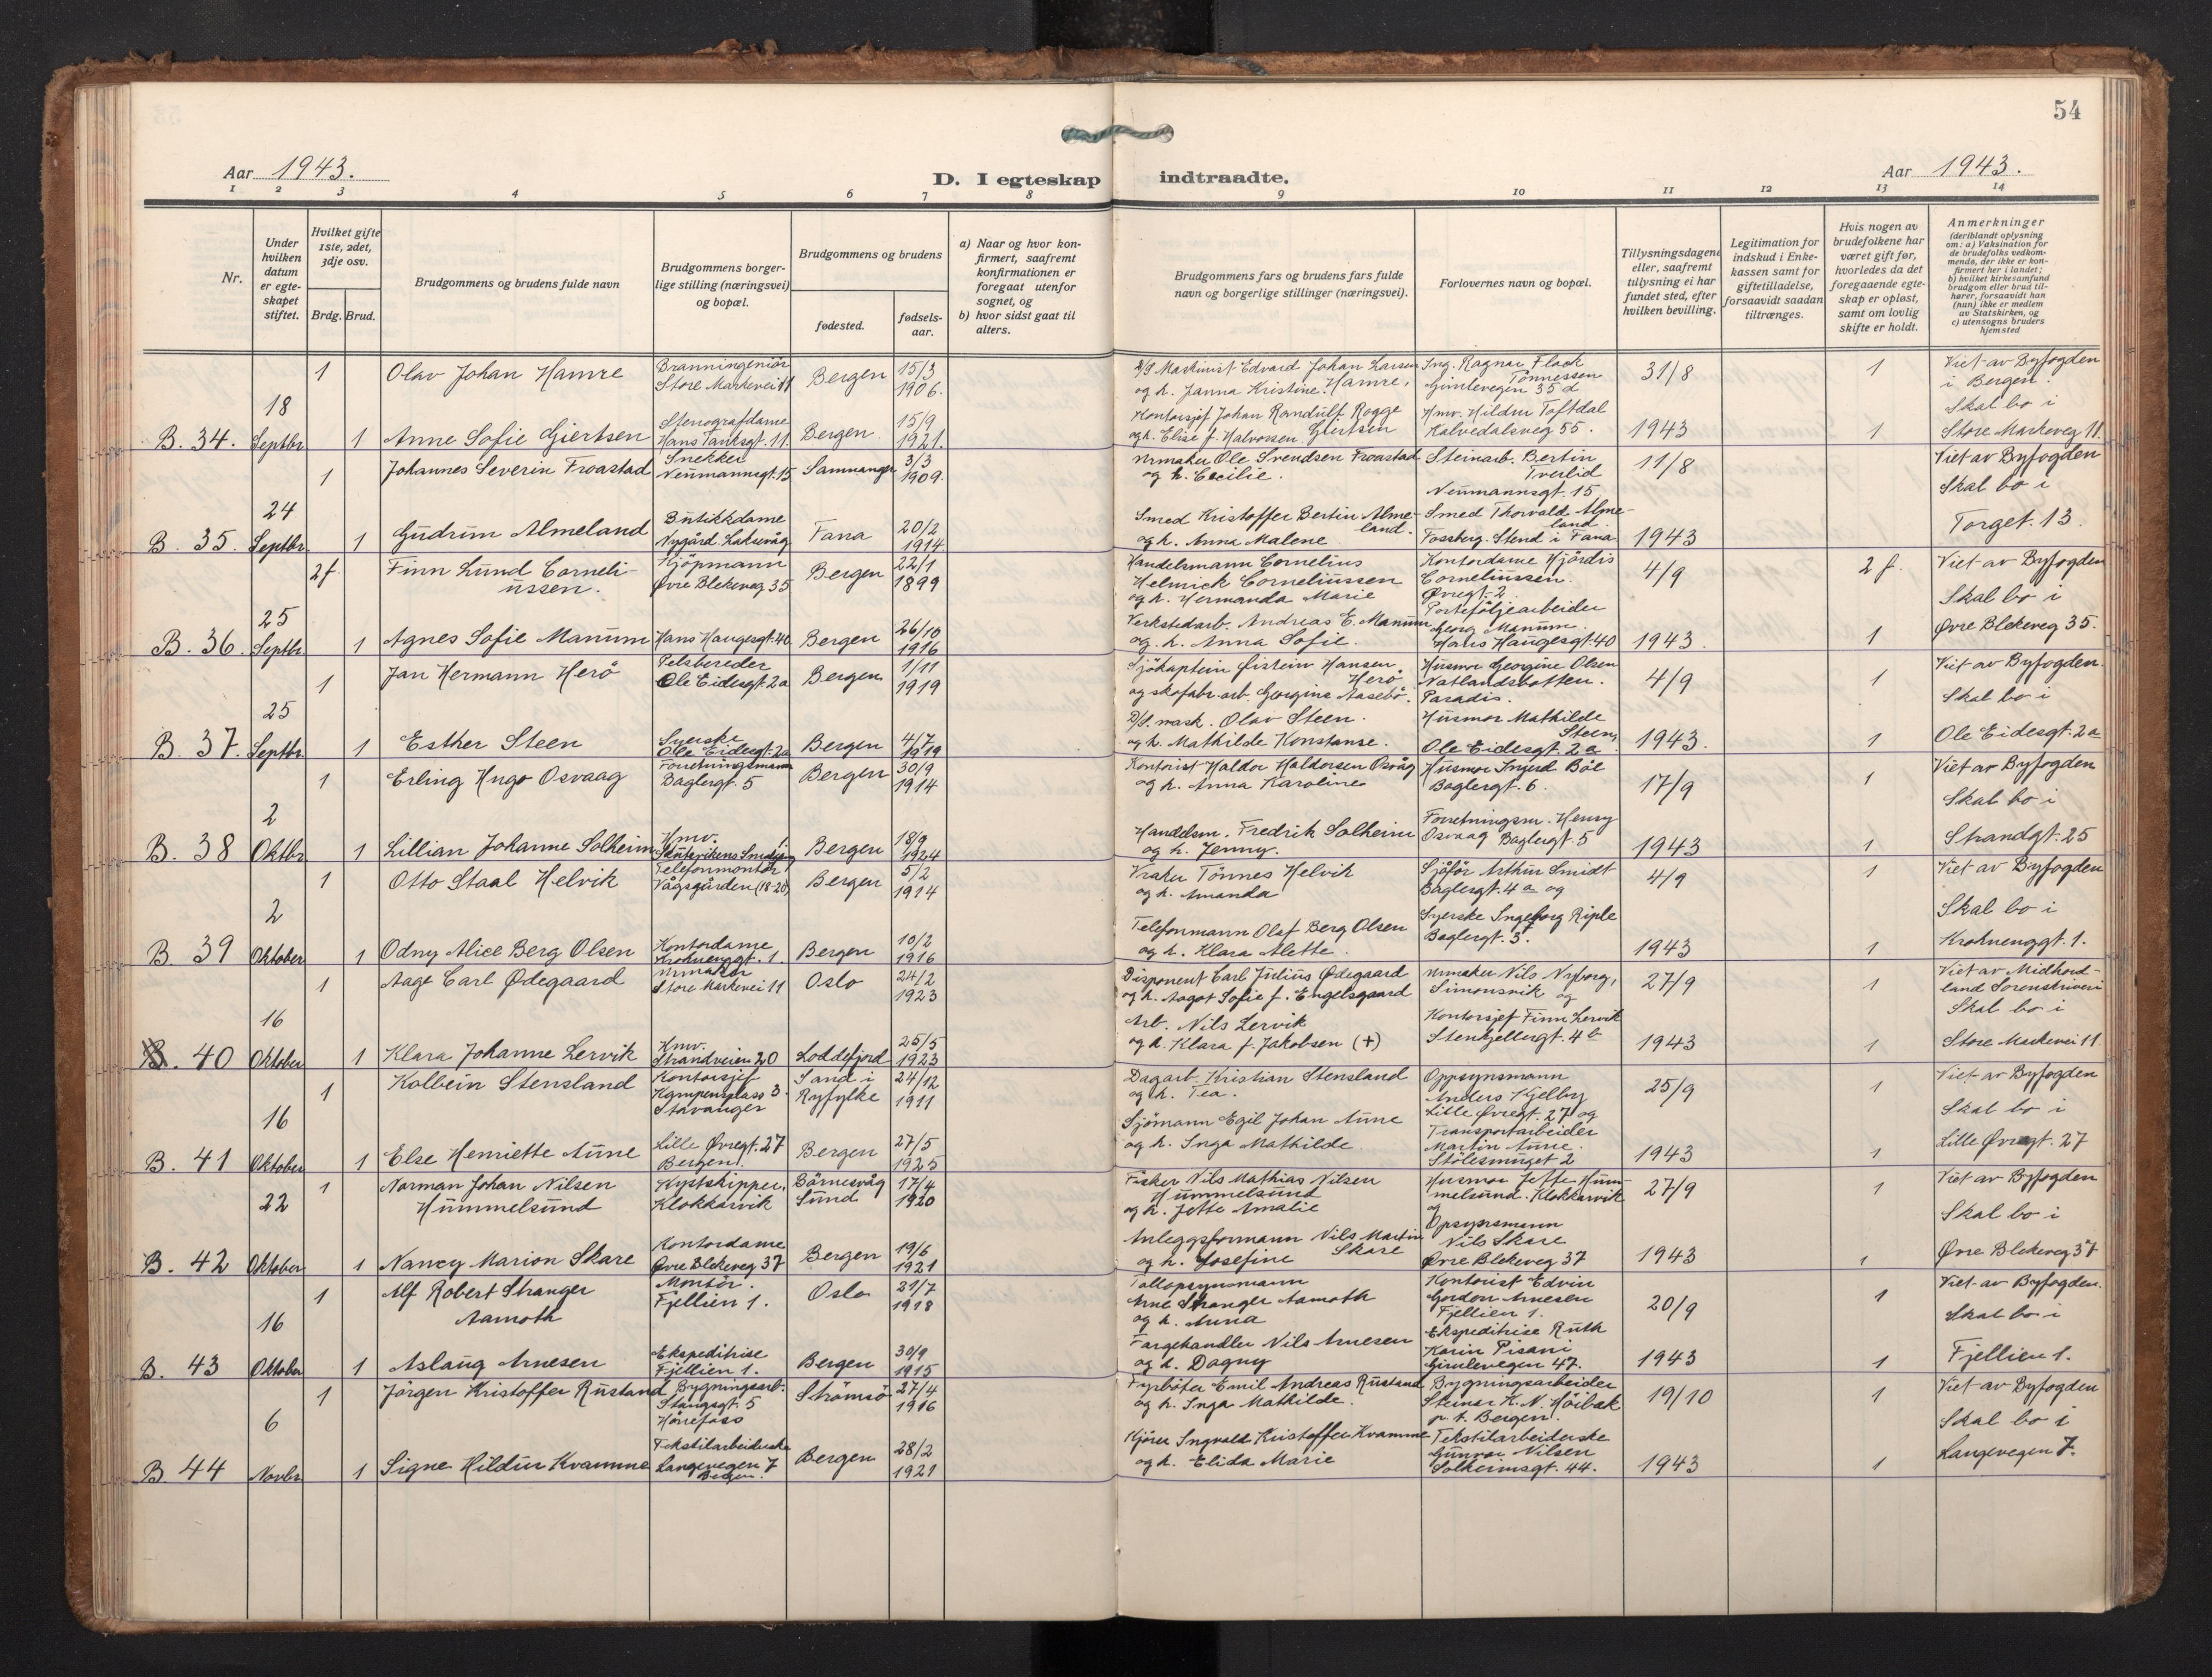 54
Aar 1943.
D. I egteskap indtraadte.
Aar 1943.
1 2 3 4 5 6 7 8 9 10 11 12 13 14
Nr.
Under hvilken datum er egteskapet stiftet.
Hvilket gifte 1ste, 2det, 3dje osv.
Brdg. Brud.
Brudgommens og brudens fulde navn
Brudgommens borgerlige stilling (næringsvei) og bopæl.
Brudgommens og brudens
fødested.
fødselsaar.
a) Naar og hvor konfirmert, saafremt konfirmationen er foregaat utenfor sognet, og
b) hvor sidst gaat til alters.
Brudgommens fars og brudens fars fulde navn og borgerlige stillinger (næringsvei).
Forlovernes navn og bopæl.
Tillysningsdagene eller, saafremt tillysning ei har fundet sted, efter hvilken bevilling.
Legitimation for indskud i Enkekassen samt for giftetilladelse, forsaavidt saadan tiltrænges.
Hvis nogen av brudefolkene har været gift før, hvorledes da det foregaaende egteskap er opløst, samt om lovlig skifte er holdt.
Anmerkninger
(deriblandt oplysning om: a) Vaksination for de brudefolks vedkommende, der ikke er konfirmert her i landet; b) hvilket kirkesamfund brudgom eller brud tilhører, forsaavidt han (hun) ikke er medlem av Statskirken, og c) utensogns bruders hjemsted
1 Olav Johan Hamre Branningeniör Store Markevei 11 Bergen 15/3 1906. D/S Maskinist Edvard Johan Larsen og h. Janna Kristine Hamre, Ing. Ragnar Flack Tönnessen 35 d 31/8 1 Viet av Byfogden i Bergen.
B. 34. 18 Septbr. 1 Anne Sofie Giertsen Stenografdame Hans Tanksgt. 11. Bergen 15/9 1921. Kontorsjef Johan Randulf Rogge Giertsen og h. Elise f. Halvorsen Hmv. Hildur Toftdal Kalvedalsveg 55. 1943 1 Skal bo i Store Markeveg 11.
1 Johannes Severin Froastad Snekker Neumannsgt. 15 Samnanger 3/3 1909. Urmaker Ole Svendsen Froastad og h. Cecilie. Steinarb. Bertin Tverlid Neumannsgt. 15 11/8 Viet av Byfogden
B. 35. 24 Septbr. 1 Gudrun Almeland Butikkdame Nygård. Laksevåg Fana 20/2 1914 Smed Kristoffer Bertin Almeland. og h. Anna Malene Smed Thorvald Almeland. Fossberg. Stend i Fana 1943 Skal bo i Torget. 13.
2 f. Finn Lund Corneliussen. Kjöpmann Øvre Blekeveg 35 Bergen 22/1 1899 Handelsmann Cornelius Helmick Corneliussen og h. Hermanda Marie Kontordame Hjördis Corneliussen. Øvregt. 2 4/9 2 f. Viet av Byfogden
B. 36. 25 Septbr. 1 Agnes Sofie Manum Hans Haugesgt. 40 Bergen 26/10 1916 Verkstedarb. Andreas E. Manum og h. Anna Sofie. Porteföljearbeider Georg Manum. Hans Haugesgt. 40 1943. 1 Skal bo i Øvre Blekeveg 35.
1 Jan Hermann Herö Pelsbereder Ole Eidesgt. 2a Bergen 1/11 1919 Sjökaptein Øistein Hansen Herö og skofabr. arb. Georgine Aasebö. Husmor Georgine Olsen Natlandsbotten. Paradis. 4/9 1 Viet av Byfogden.
B. 37. 25 Septbr. 1 Esther Steen Syerske Ole Eidesgt. 2a Bergen 4/7 1919 D/S. mask. Olav Steen. og h. Mathilde Konstanse. Husmor Mathilde Steen, Ole Eidesgt. 2a 1943. 1 Skal bo i Ole Eidesgt. 2a
1 Erling Hugo Osvaag Forretningsmann Baglergt. 5 Bergen 30/9 1914 Kontorist Haldor Haldorsen Osvåg og h. Anna Karoline Husmor Ingerd Böe Baglergt. 6. 17/9 1 Viet av Byfogden
B. 38 2 Oktbr. 1 Lillian Johanne Solheim Hmv. Bergen 18/9 1924 Handelsm. Fredrik Solheim og h. Jenny. Forretningsm. Henry Osvaag Baglergt. 5 1943 1 Skal bo i Strandgt. 25
1 Otto Staal Helvik Telefonmontör Vågsgården (18-20) Bergen 5/2 1914 Vraker Tönnes Helvik og h. Amanda Sjåför Arthur Smidt Baglergt. 4a og 4/9 Viet av Byfogden
B. 39 2 Oktober 1 Odny Alice Berg Olsen Kontordame Krohnenggt. 1. Bergen 10/2 1916 Telefonmann Olaf Berg Olsen og h. Klara Alette. Syerske Ingeborg Riple Baglergt. 3. 1943 1 Skal bo i Krohnenggt. 1.
1 Aage Carl Ødegaard Urmaker Store Markevei 11 Oslo 24/2 1923 Disponent Carl Julius Ødegaard og h. Aagot Sofie f. Engelsgaard Urmaker Nils Nyborg, Simonsvik og 27/9 1 Viet av Midhordland Sorenskriveri
B. 40 16 Oktober 1 Klara Johanne Lervik Hmv. Strandveien 20 Loddefjord 25/5 1923 Arb. Nils Lervik og h. Klara f. Jakobsen (+) Kontorsjef Finn Lervik Stenkjellergt. 4b 1943 1 Skal bo i Store Markevei 11.
1 Kolbein Stensland Kontorsjef Kampensplass 3. Stavanger Sand i Ryfylke 24/12 1911 Dagarb. Kristian Stensland og h. Tea. Oppsynsmann Anders Kjelby Lille Øvregt. 27 og 25/9 1 Viet av Byfogden
B. 41 16 Oktober 1 Else Henriette Aune Lille Øvregt. 27 Bergen. Bergen 27/5 1925 Sjömann Egil Johan Aune og h. Inga Mathilde. Transportarbeider Martin Aune. Stölesmuget 2 1943 1 Skal bo i Lille Øvregt. 27
1 Norman Johan Nilsen Hummelsund Kystskipper, Klokkarvik Börnesvåg Sund 17/4 1920 Fisker Nils Mathias Nilsen Hummelsund og h. Jette Amalie Husmor Jette Hummelsund. Klokkarvik og 27/9 1 Viet av Byfogden
B. 42 22 Oktober 1 Nancy Marion Skare Kontordame Øvre Blekeveg 37 Bergen 19/6 1921 Anleggsformann Nils Martin Skare og h. Josefine Opsynsmann Nils Skare Øvre Blekeveg 37 1943 1 Skal bo i Øvre Blekeveg 37
1 Alf Robert Stranger Aamoth Montör. Fjellien 1. Oslo 21/7 1918 Tollopsynsmann Arne Stranger Aamoth og h. Anna Kontorist Edvin Gordon Arnesen Fjellien 1. 20/9 1 Viet av Byfogden.
B. 43 16 Oktober 1 Aslaug Arnesen Ekspeditrise Fjellien 1. Bergen 30/9 1915 Fargehandler Nils Arnesen og h. Dagny Ekspeditrise Ruth Karin Pisani 47. 1943 1 Skal bo i Fjellien 1.
1 Jörgen Kristoffer Rustand Bygningsarb. Stangsgt. 5 Hönefoss Strömsö 27/4 1916 Fyrböter Emil Andreas Rustand og h. Inga Mathilde. Bygningsarbeider Steinar K. N. Höibak p. t. Bergen. 19/10 1 Viet av Byfogden
B 44 6 Novbr. 1 Signe Hildur Kvamme Tekstilarbeiderske Langevegen 7 Bergen. Bergen 28/2 1921 Kjörer Ingvald Kristoffer Kvamme og h. Elida Marie Tekstilarbeiderske Gunvor Nilsen Solheimsgt. 44. 1943 1 Skal bo i Langevegen 7.